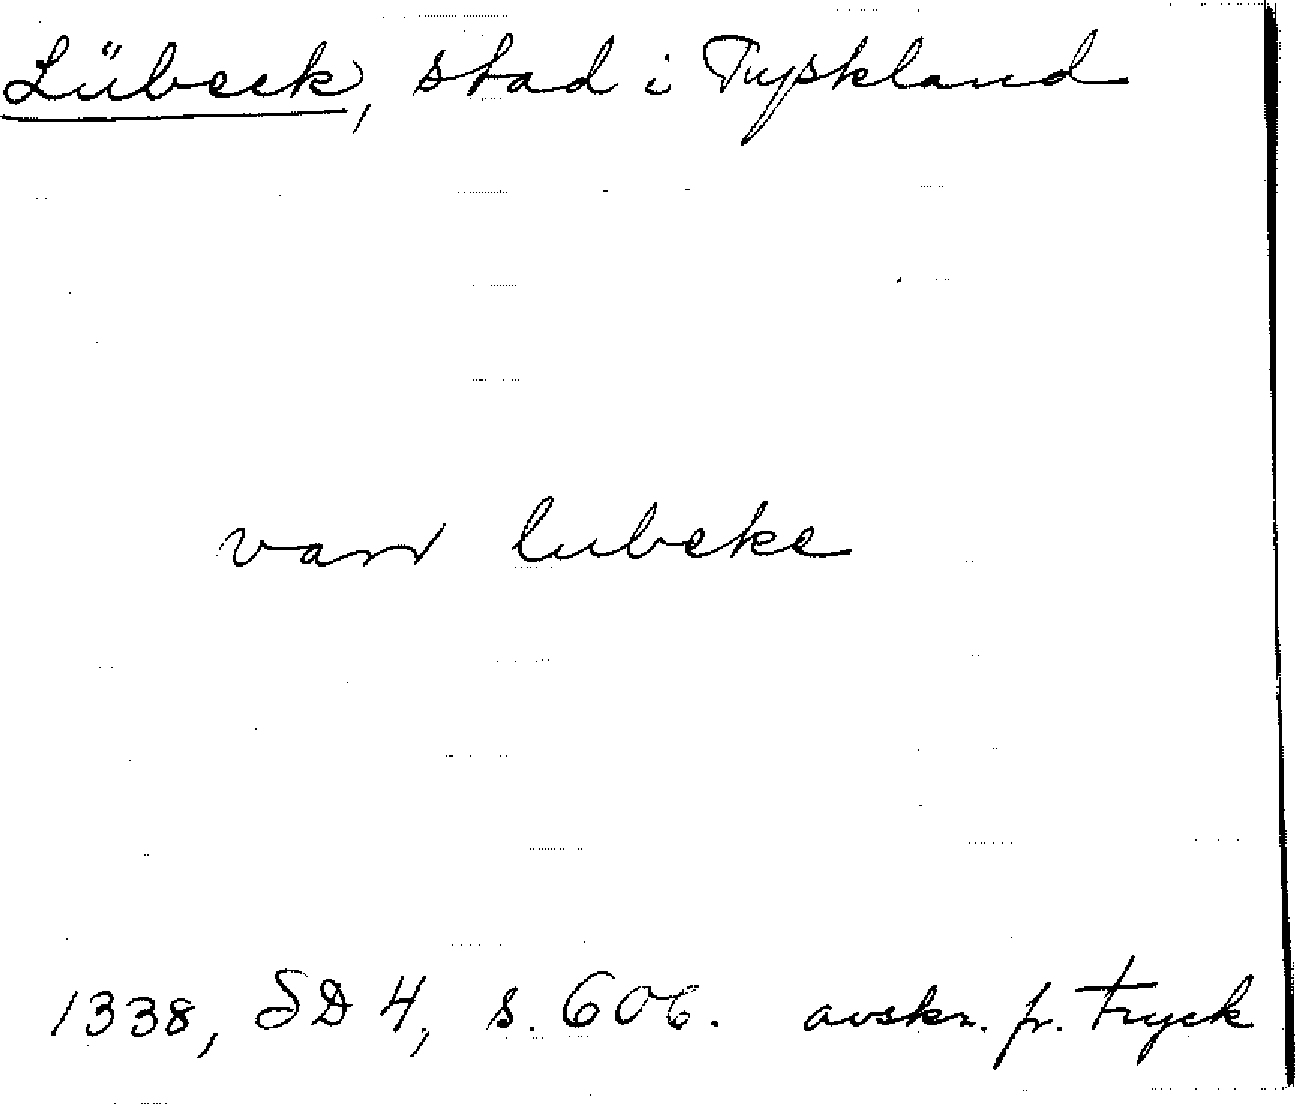 Lübeck, stad i Tyskland
van lubeke
1338, SD 4, s. 606. avskr. fr. tryck